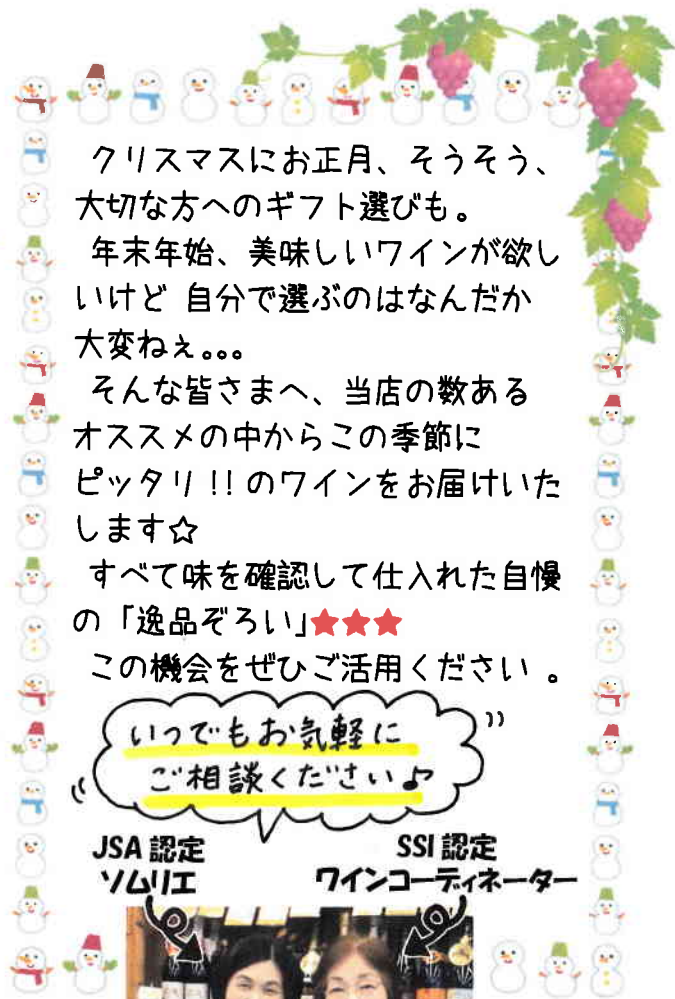 クリスマスにお正月、そうそう、
大切な方へのギフト選びも。
年末年始、美味しいワインが欲し
いけど 自分で選ぶのはなんだか
大変ねぇ。。。
そんな皆さまへ、当店の数ある
オススメの中からこの季節に
ピッタリ!!のワインをお届けいた
します☆
すべて味を確認して仕入れた自慢
の「逸品ぞろい」★★★
この機会をぜひご活用ください 。
いつでもお気軽に
ご相談ください♪
JSA 認定
ソムリエ
SSI 認定
ワインコーディネーター